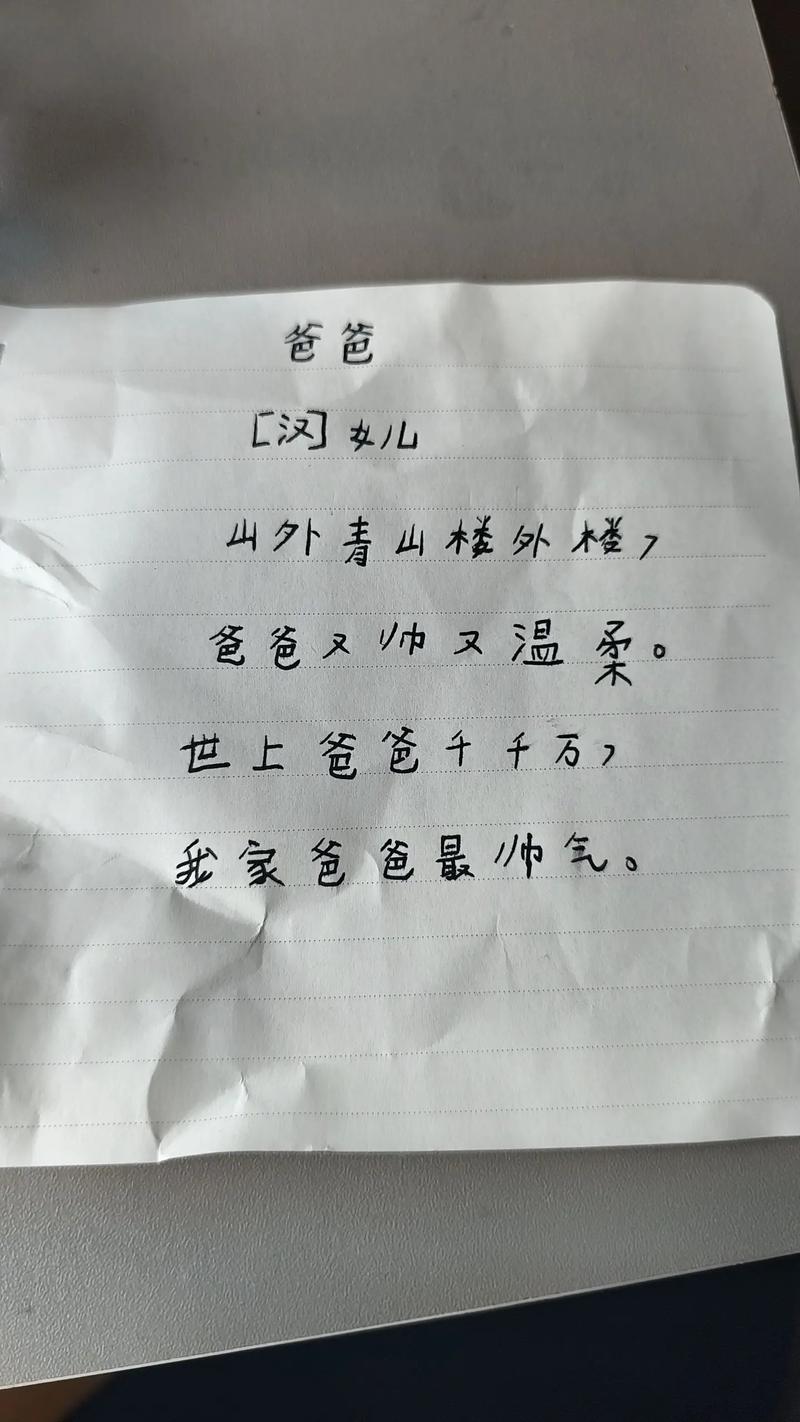 爸爸
[汉]女儿
山外青山楼外楼,
爸爸又帅又温柔。
世上爸爸千千万,
我家爸爸最帅气。